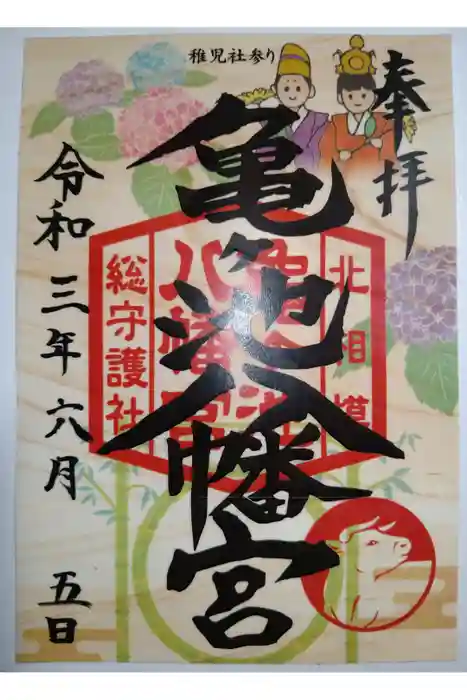 稚児社参り
奉拝
亀ヶ池八幡宮
北相模
亀ヶ池
八幡宮
総守護社
令和三年六月
五日